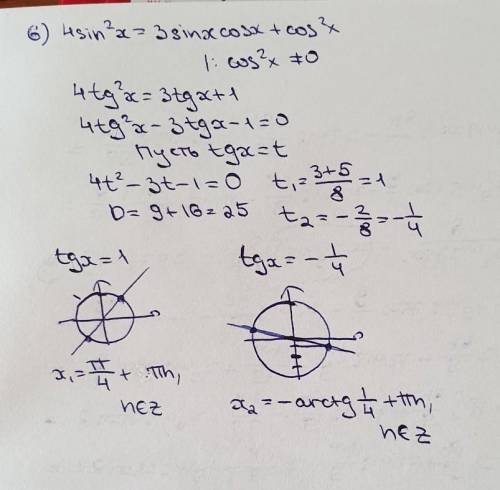 б) 4sin²x = 3sinxcosx + cos²x
|: cos²x ≠ 0
4tg²x = 3tgx + 1
4tg²x - 3tgx - 1 = 0
Пусть tgx = t
4t² - 3t - 1 = 0 t₁ = (3+5)/8 = 1
D = 9 + 16 = 25 t₂ = -2/8 = -1/4
tgx = 1 tgx = -1/4
x₁ = π/4 + πn,
n∈Z
x₂ = -arctg 1/4 + πn,
n∈Z